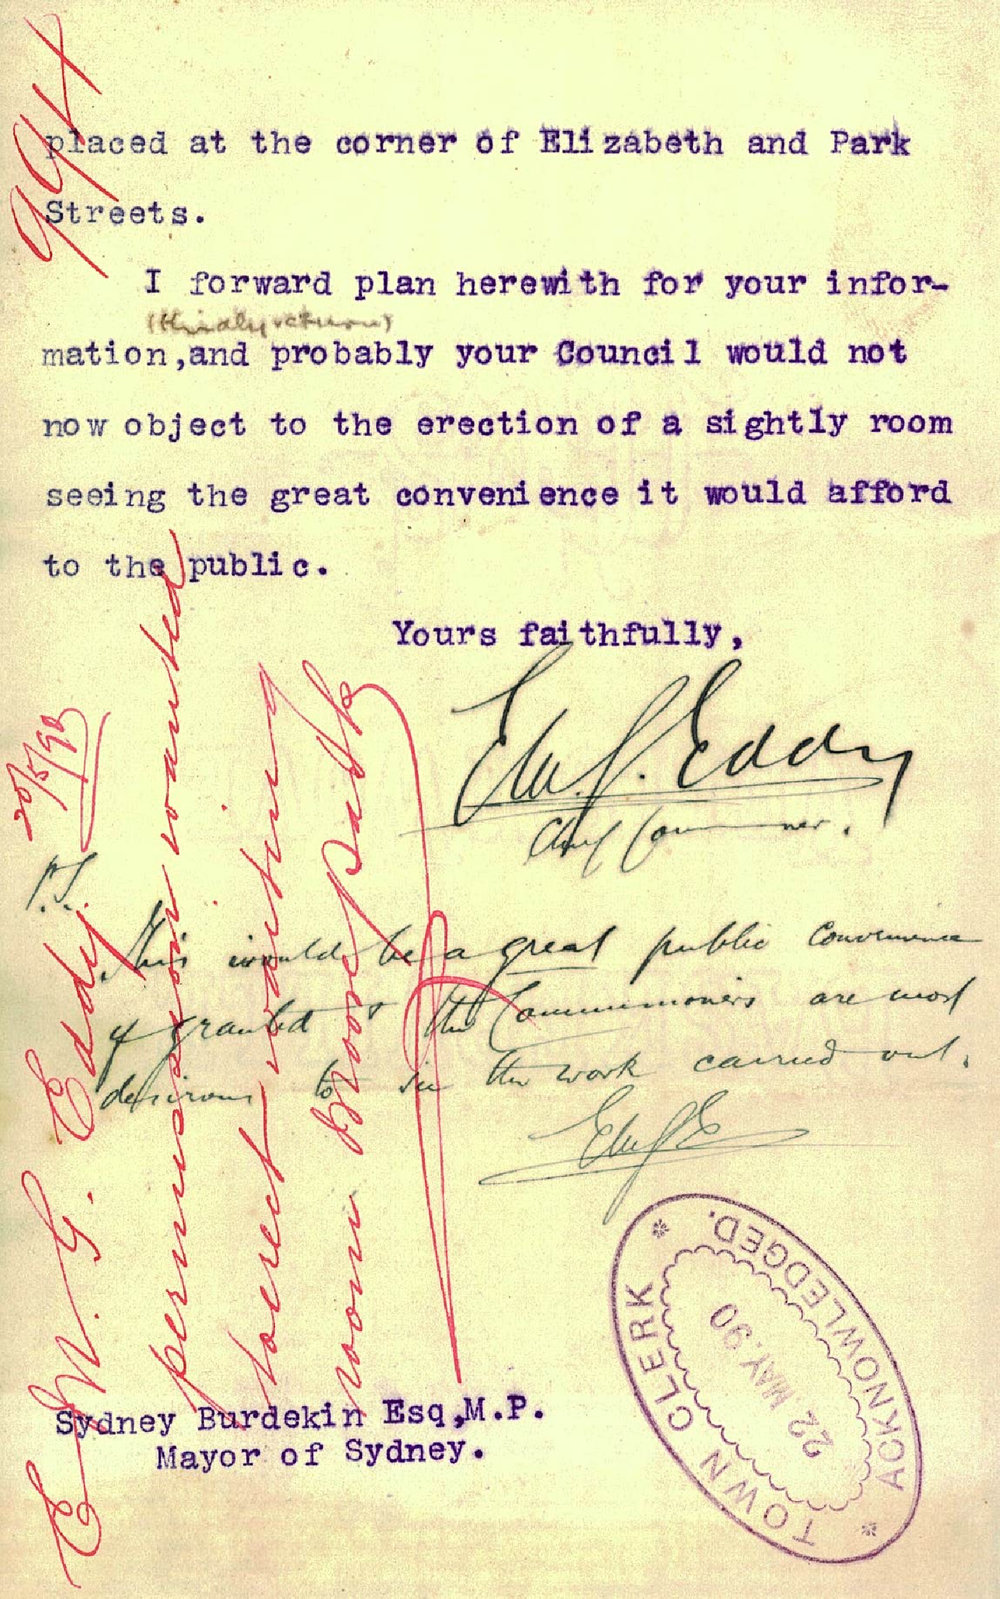 994
placed at the corner of Elizabeth and Park
Streets.
I forward plan herewith for your infor-
(kindly return)
mation, and probably your Council would not
now object to the erection of a sightly room
seeing the great convenience it would afford
to the public.
Yours faithfully,
E.M.G. Eddy
Chief Commissioner.
P.S.
This would be a great public convenience
if granted & the Commissioners are most
desirous to see the work carried out.
EMGE
Sydney Burdekin Esq, M.P.
Mayor of Sydney.
E.M.G. Eddy 20/5/90
permission wanted
to erect waiting
room Park
TOWN CLERK
ACKNOWLEDGED.
22 MAY.90